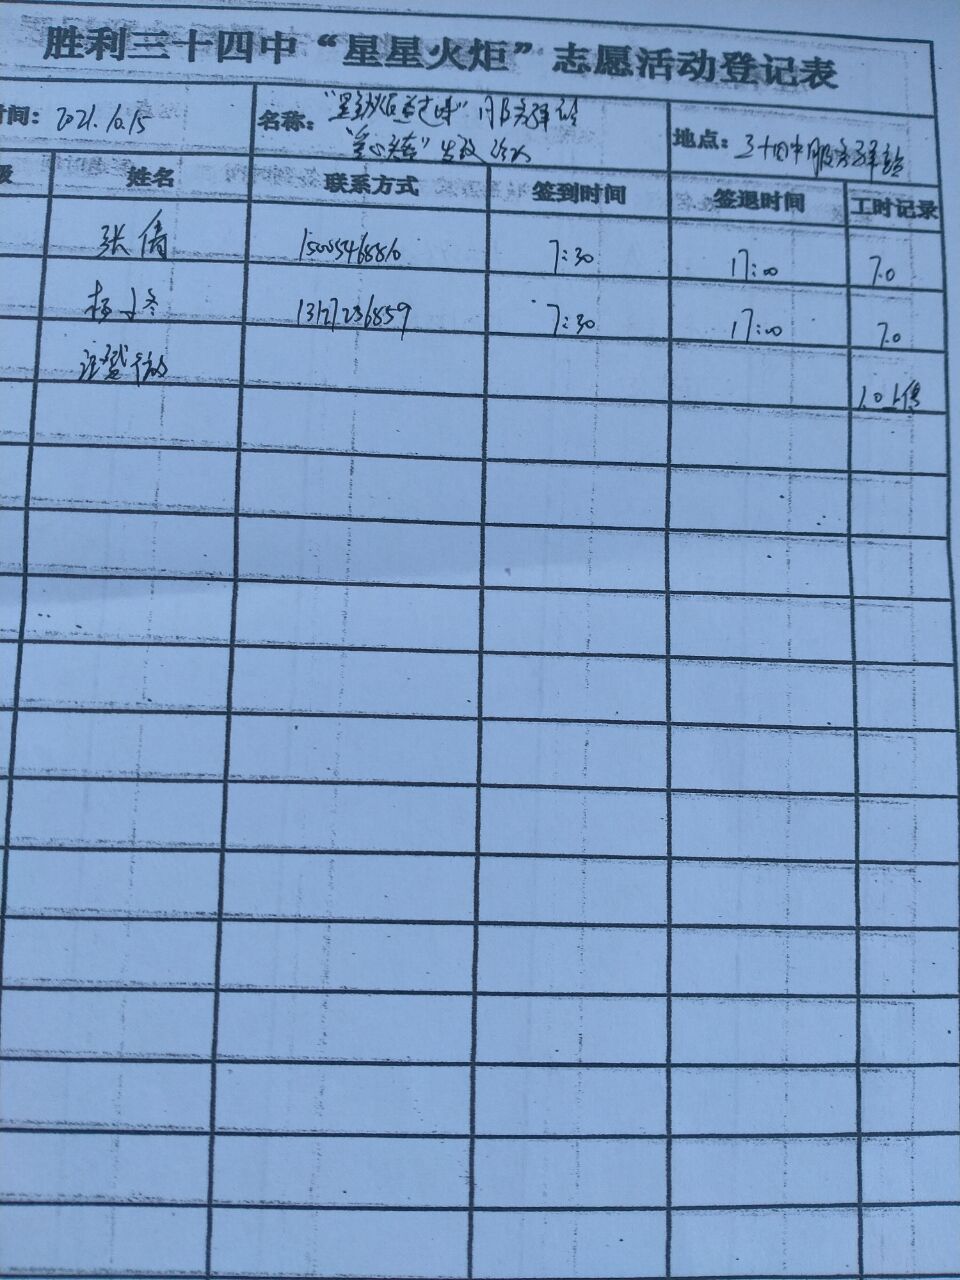 胜利三十四中“星星火炬”志愿活动登记表
时间：2021.10.15
名称：“星星火炬 ” 服务驿站
“ ”
地点：三十四中服务驿站
级 姓名 联系方式 签到时间 签退时间 工时记录
张倩 7:30 17:00 7.0
杨 13127236859 7:30 17:00 7.0
1.0上传